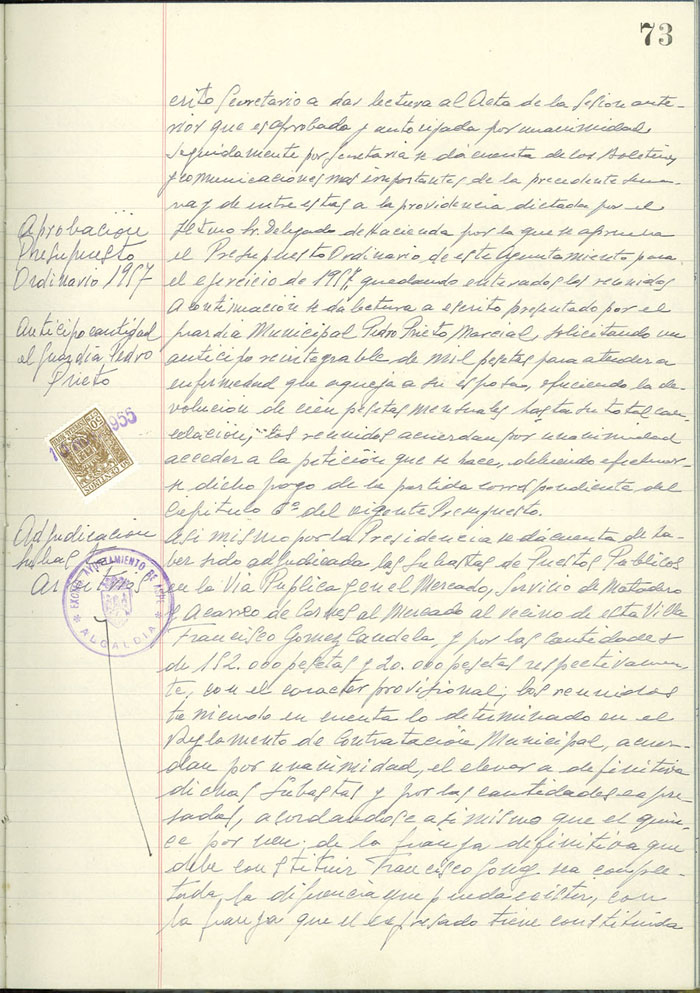 73
crito Secretario a dar lectura al Acta de la Sesion ante-
rior que es aprobada y autorizada por unanimidad.
Seguidamente por Secretaria se da cuenta de los Boletines
y comunicaciones mas importantes de la precedente sema-
na y de entre estas a la providencia dictada por el
Iltmo Sr. Delegado de Hacienda por la que se aprueba
el Presupuesto Ordinario de este Ayuntamiento para
el ejercicio de 1957, quedando enterados los reunidos
A continuación se da lectura a escrito presentado por el
guardia Municipal Pedro Prieto Marcial, solicitando un
anticipo reintegrable de mil pesetas para atender a
enfermedad que aqueja a su esposa, ofreciendo la de-
volucion de cien pesetas mensuales hasta su total can-
celacion; los reunidos acuerdan por unanimidad
acceder a la petición que se hace, debiendo efectuar-
se dicho pago de la partida correspondiente del
Capitulo del vigente Presupuesto.
Asi mismo por la Presidencia se da cuenta de ha-
ber sido adjudicada las Subastas de Puestos Publicos
en la Via Publica y en el Mercado, Servicio de Matadero
y Acarreo de Carnes al Mercado al vecino de esta Villa
Francisco Gomez Candela, y por las cantidades
de 152.000 pesetas y 20.000 pesetas respectivamen-
te, con el caracter provisional; los reunidos
teniendo en cuenta lo determinado en el
Reglamento de Contratación Municipal, acuer-
dan por unanimidad, el elevar a definitiva
dichas Subastas y por las cantidades expre-
sadas, acordandose asi mismo que el quin-
ce por de la fianza definitiva que
debe constituir Francisco Gomez sea comple-
tada la diferencia que pueda existir, con
la fianza que el expresado tiene constituida
Aprobación
Presupuesto
Ordinario 1957
Anticipo cantidad
al Guardia Pedro
Prieto
Adjudicacion
Subas
Ar
EXCMO. AYUNTAMIENTO DE
ALCALDIA